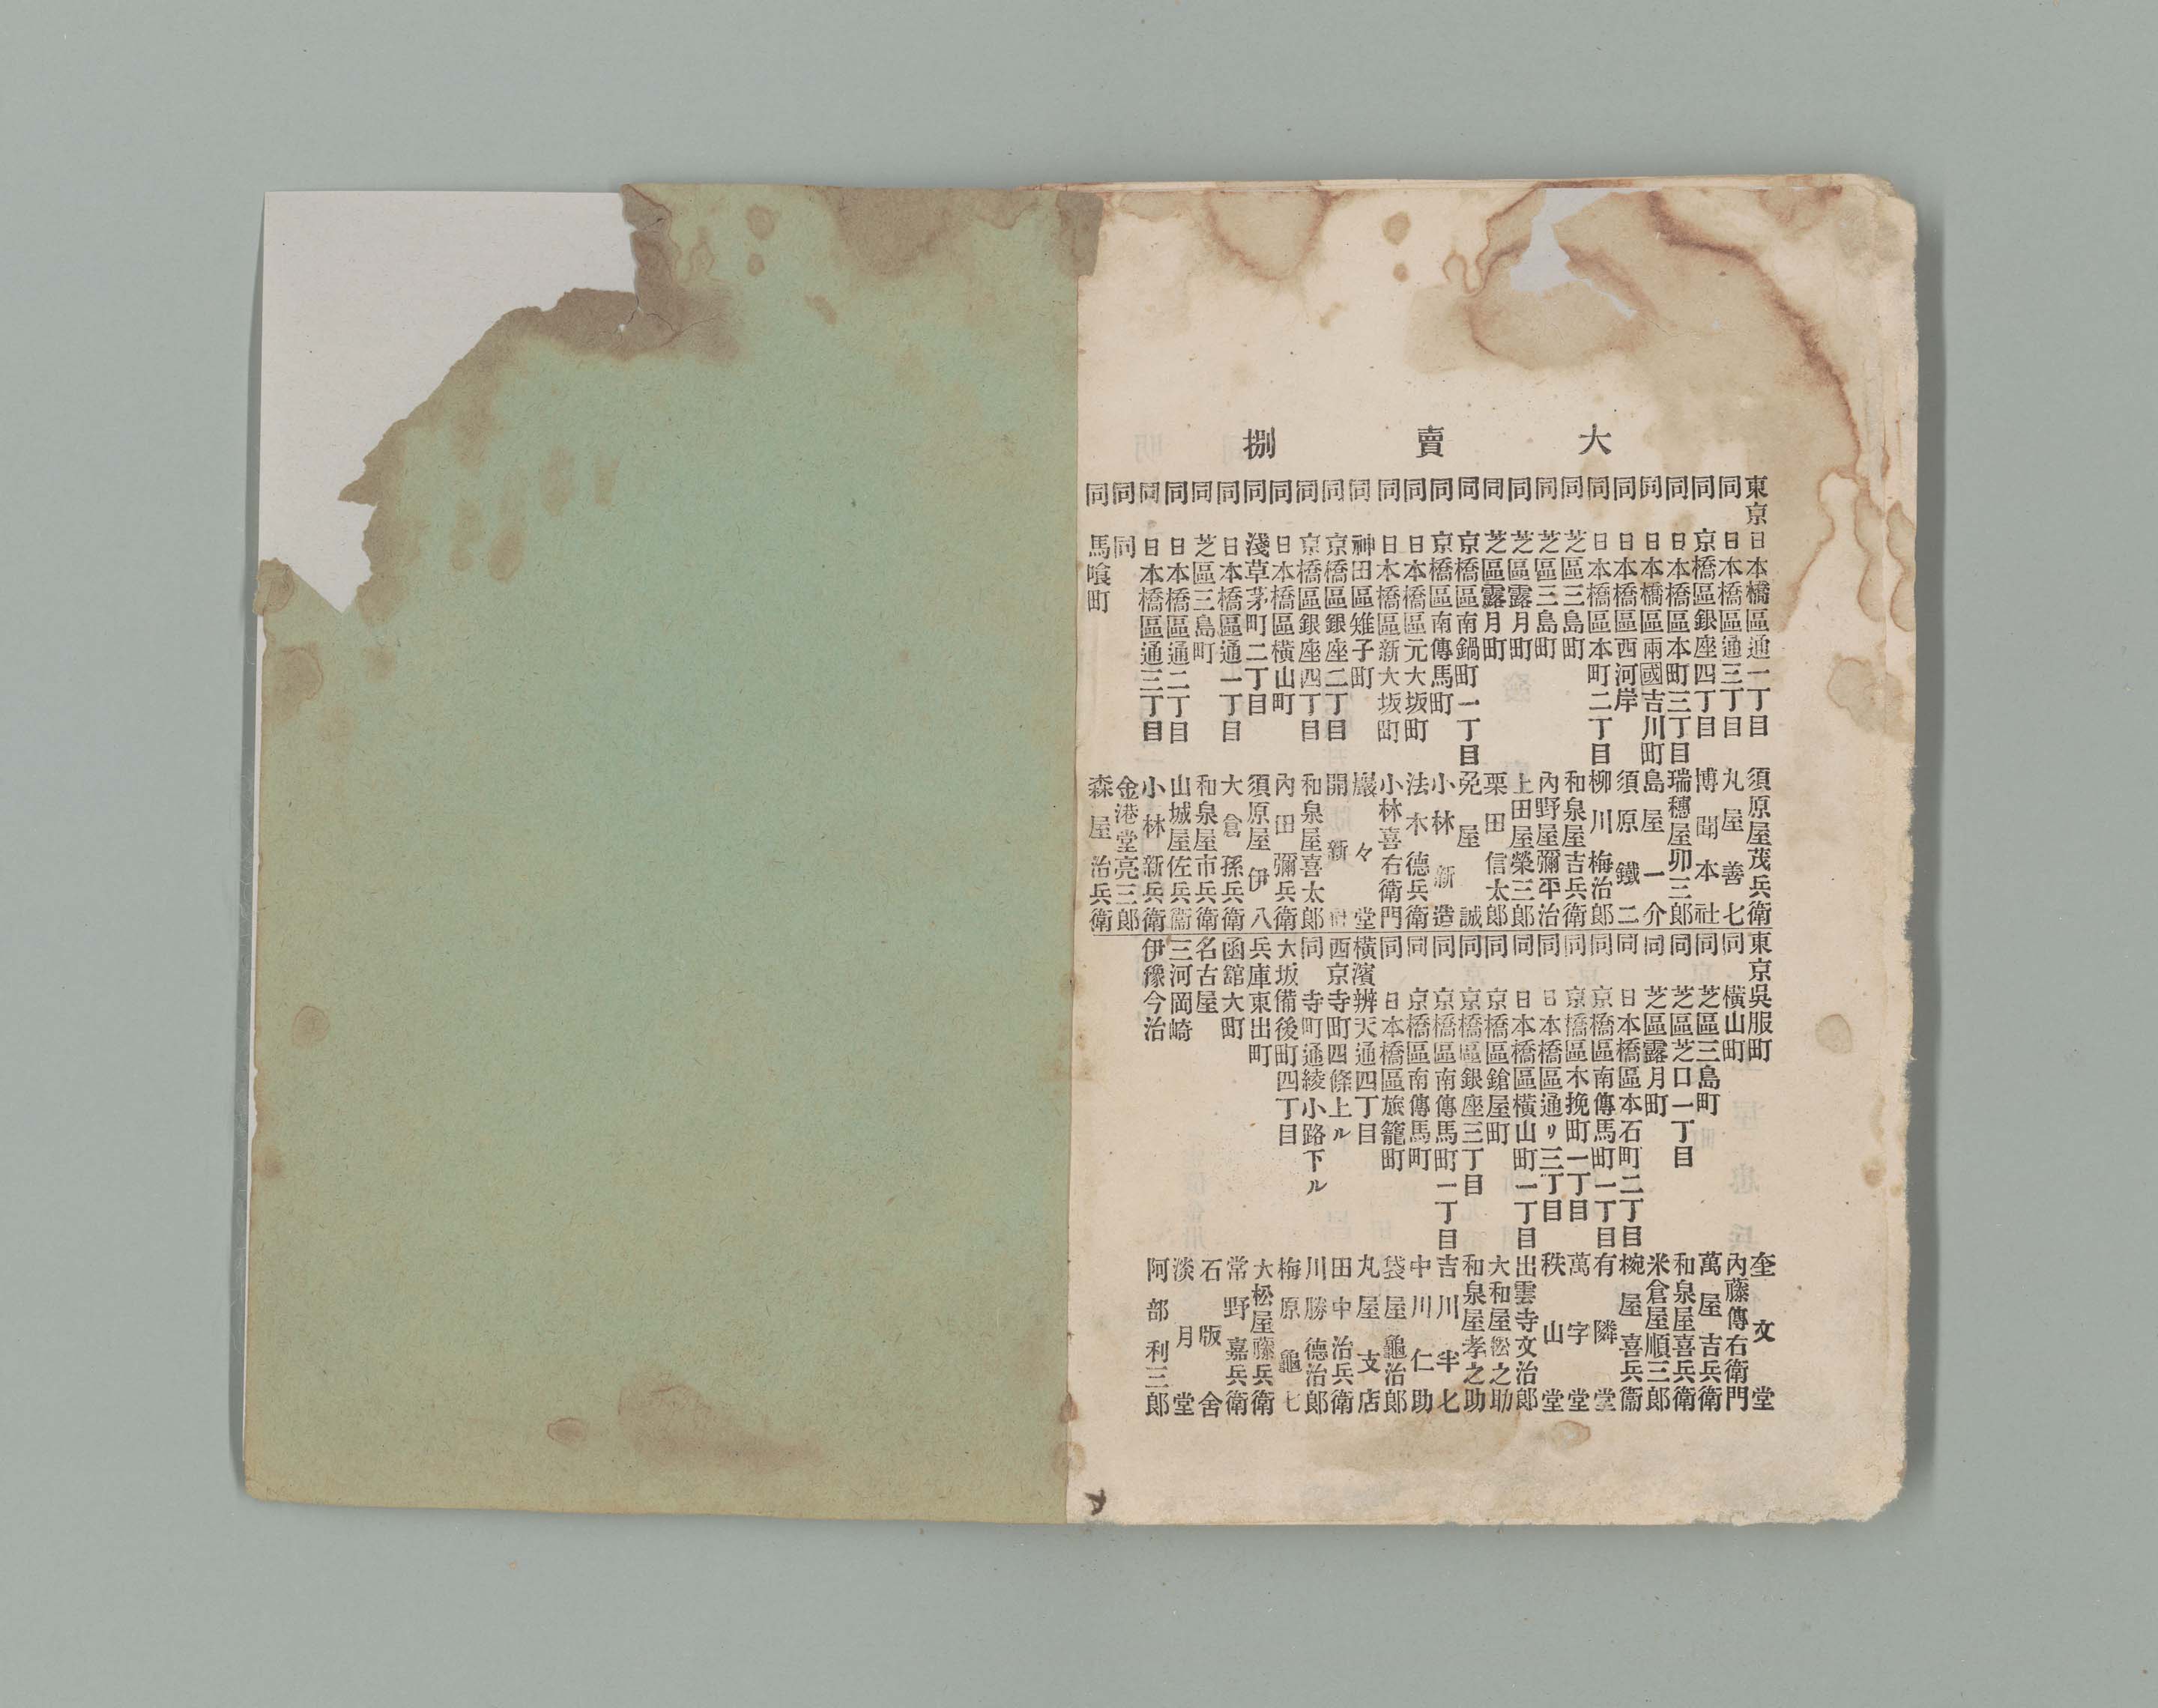 大賣捌
東京日本橋區通一丁目 須原屋茂兵衛
同 日本橋區通三丁目 丸屋善七
同 京橋區銀座四丁目 博聞本社
同 日本橋區本町三丁目 瑞穗屋卯三郎
同 日本橋區兩國吉川町 島屋一介
同 日本橋區西河岸 須原鐵二
同 日本橋區本町二丁目 柳川梅治郎
同 芝區三島町 和泉屋吉兵衛
同 芝區三島町 內野屋彌平治
同 芝區露月町 上田屋榮三郎
同 芝區露月町 栗田信太郎
同 京橋區南鍋町一丁目 兎屋誠
同 京橋區南傳馬町 小林新造
同 日本橋區元大坂町 法木德兵衛
同 日本橋區新大坂町 小林喜右衛門
同 神田區雉子町 巖々堂
同 京橋區銀座二丁目 開新
同 京橋區銀座四丁目 和泉屋喜太郎
同 日本橋區橫山町 內田彌兵衛
同 淺草茅町二丁目 須原屋伊八
同 日本橋區通一丁目 大倉孫兵衛
同 芝區三島町 和泉屋市兵衛
同 日本橋區通二丁目 山城屋佐兵衞
同 日本橋區通三丁目 小林新兵衛
同 同 金港堂亮三郎
同 馬喰町 森屋治兵衛
東京吳服町 奎文堂
同 橫山町 內藤傳右衛門
同 芝區三島町 萬屋吉兵衛
同 芝區芝口一丁目 和泉屋喜兵衛
同 芝區露月町 米倉屋順三郎
同 日本橋區本石町二丁目 椀屋喜兵衞
同 京橋區南傳馬町一丁目 有隣堂
同 京橋區木挽町一丁目 萬字堂
同 日本橋區通リ三丁目 秩山堂
同 日本橋區橫山町一丁目 出雲寺文治郎
同 京橋區鎗屋町 大和屋松之助
同 京橋區銀座三丁目 和泉屋孝之助
同 京橋區南傳馬町一丁目 吉川半七
同 京橋區南傳馬町 中川仁助
同 日本橋區旅籠町 袋屋龜治郎
橫濱辨天通四丁目 丸屋支店
西京寺町四條上ル 田中治兵衛
同 寺町通綾小路下ル 川勝德治郎
大坂備後町四丁目 梅原龜七
兵庫東出町 大松屋藤兵衛
函舘大町 常野嘉兵衛
名古屋 石版舍
三河岡崎 淡月堂
伊豫今治 阿部利三郎